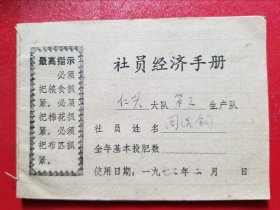 最高指示
必须
把粮食抓
紧。必须
把棉花抓
紧。必须
把布匹抓
紧。
社员经济手册
大队 第三 生产队
社员姓名 周
全年基本投肥数
使用日期:一九七 年 二 月 日